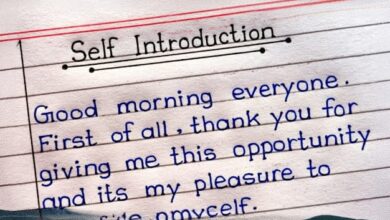 Self Introduction
Good morning everyone.
First of all, thank you for
giving me this opportunity
and its my pleasure to